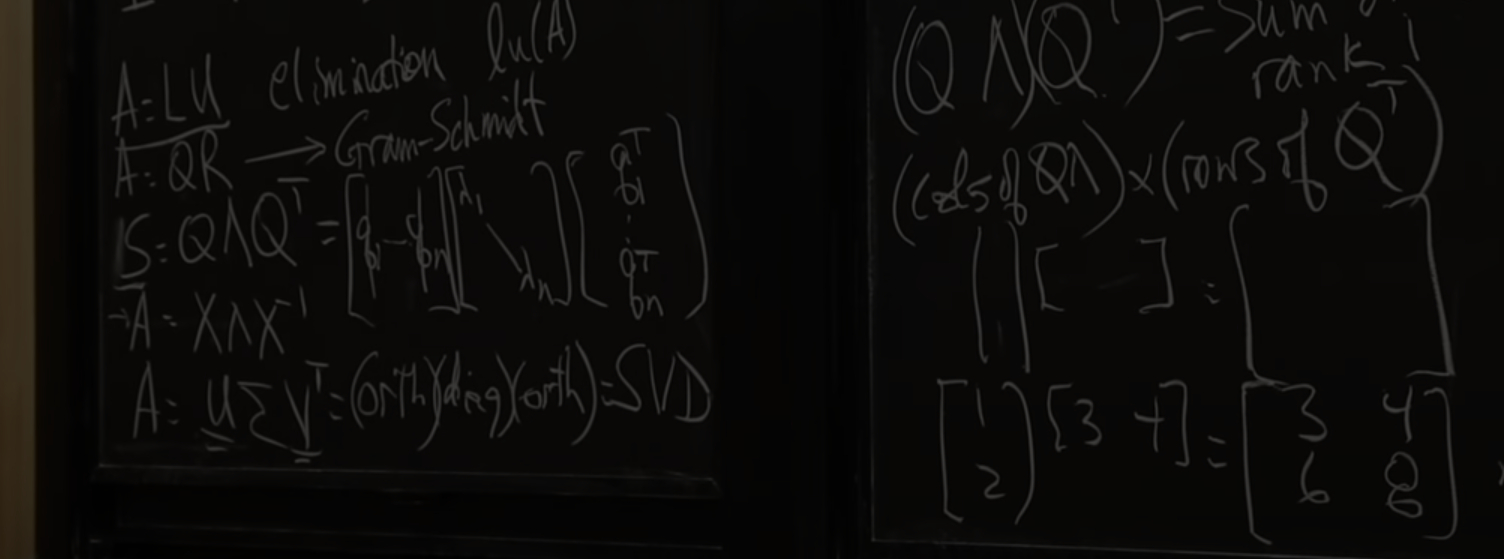 A = LU elimination lu(A)
A = QR → Gram-Schmidt
S = QΛQᵀ = [q₁ – qₙ] [λ₁ \ λₙ] [q₁ᵀ : qₙᵀ]
→ A = XΛX⁻¹
A = UΣVᵀ = (orth)(diag)(orth) = SVD
(QΛ)(Qᵀ) = sum
rank 1
(cols of QΛ) × (rows of Qᵀ)
[ ] [ ] = [ ]
[1 2] [3 4] = [3 4
6 8]